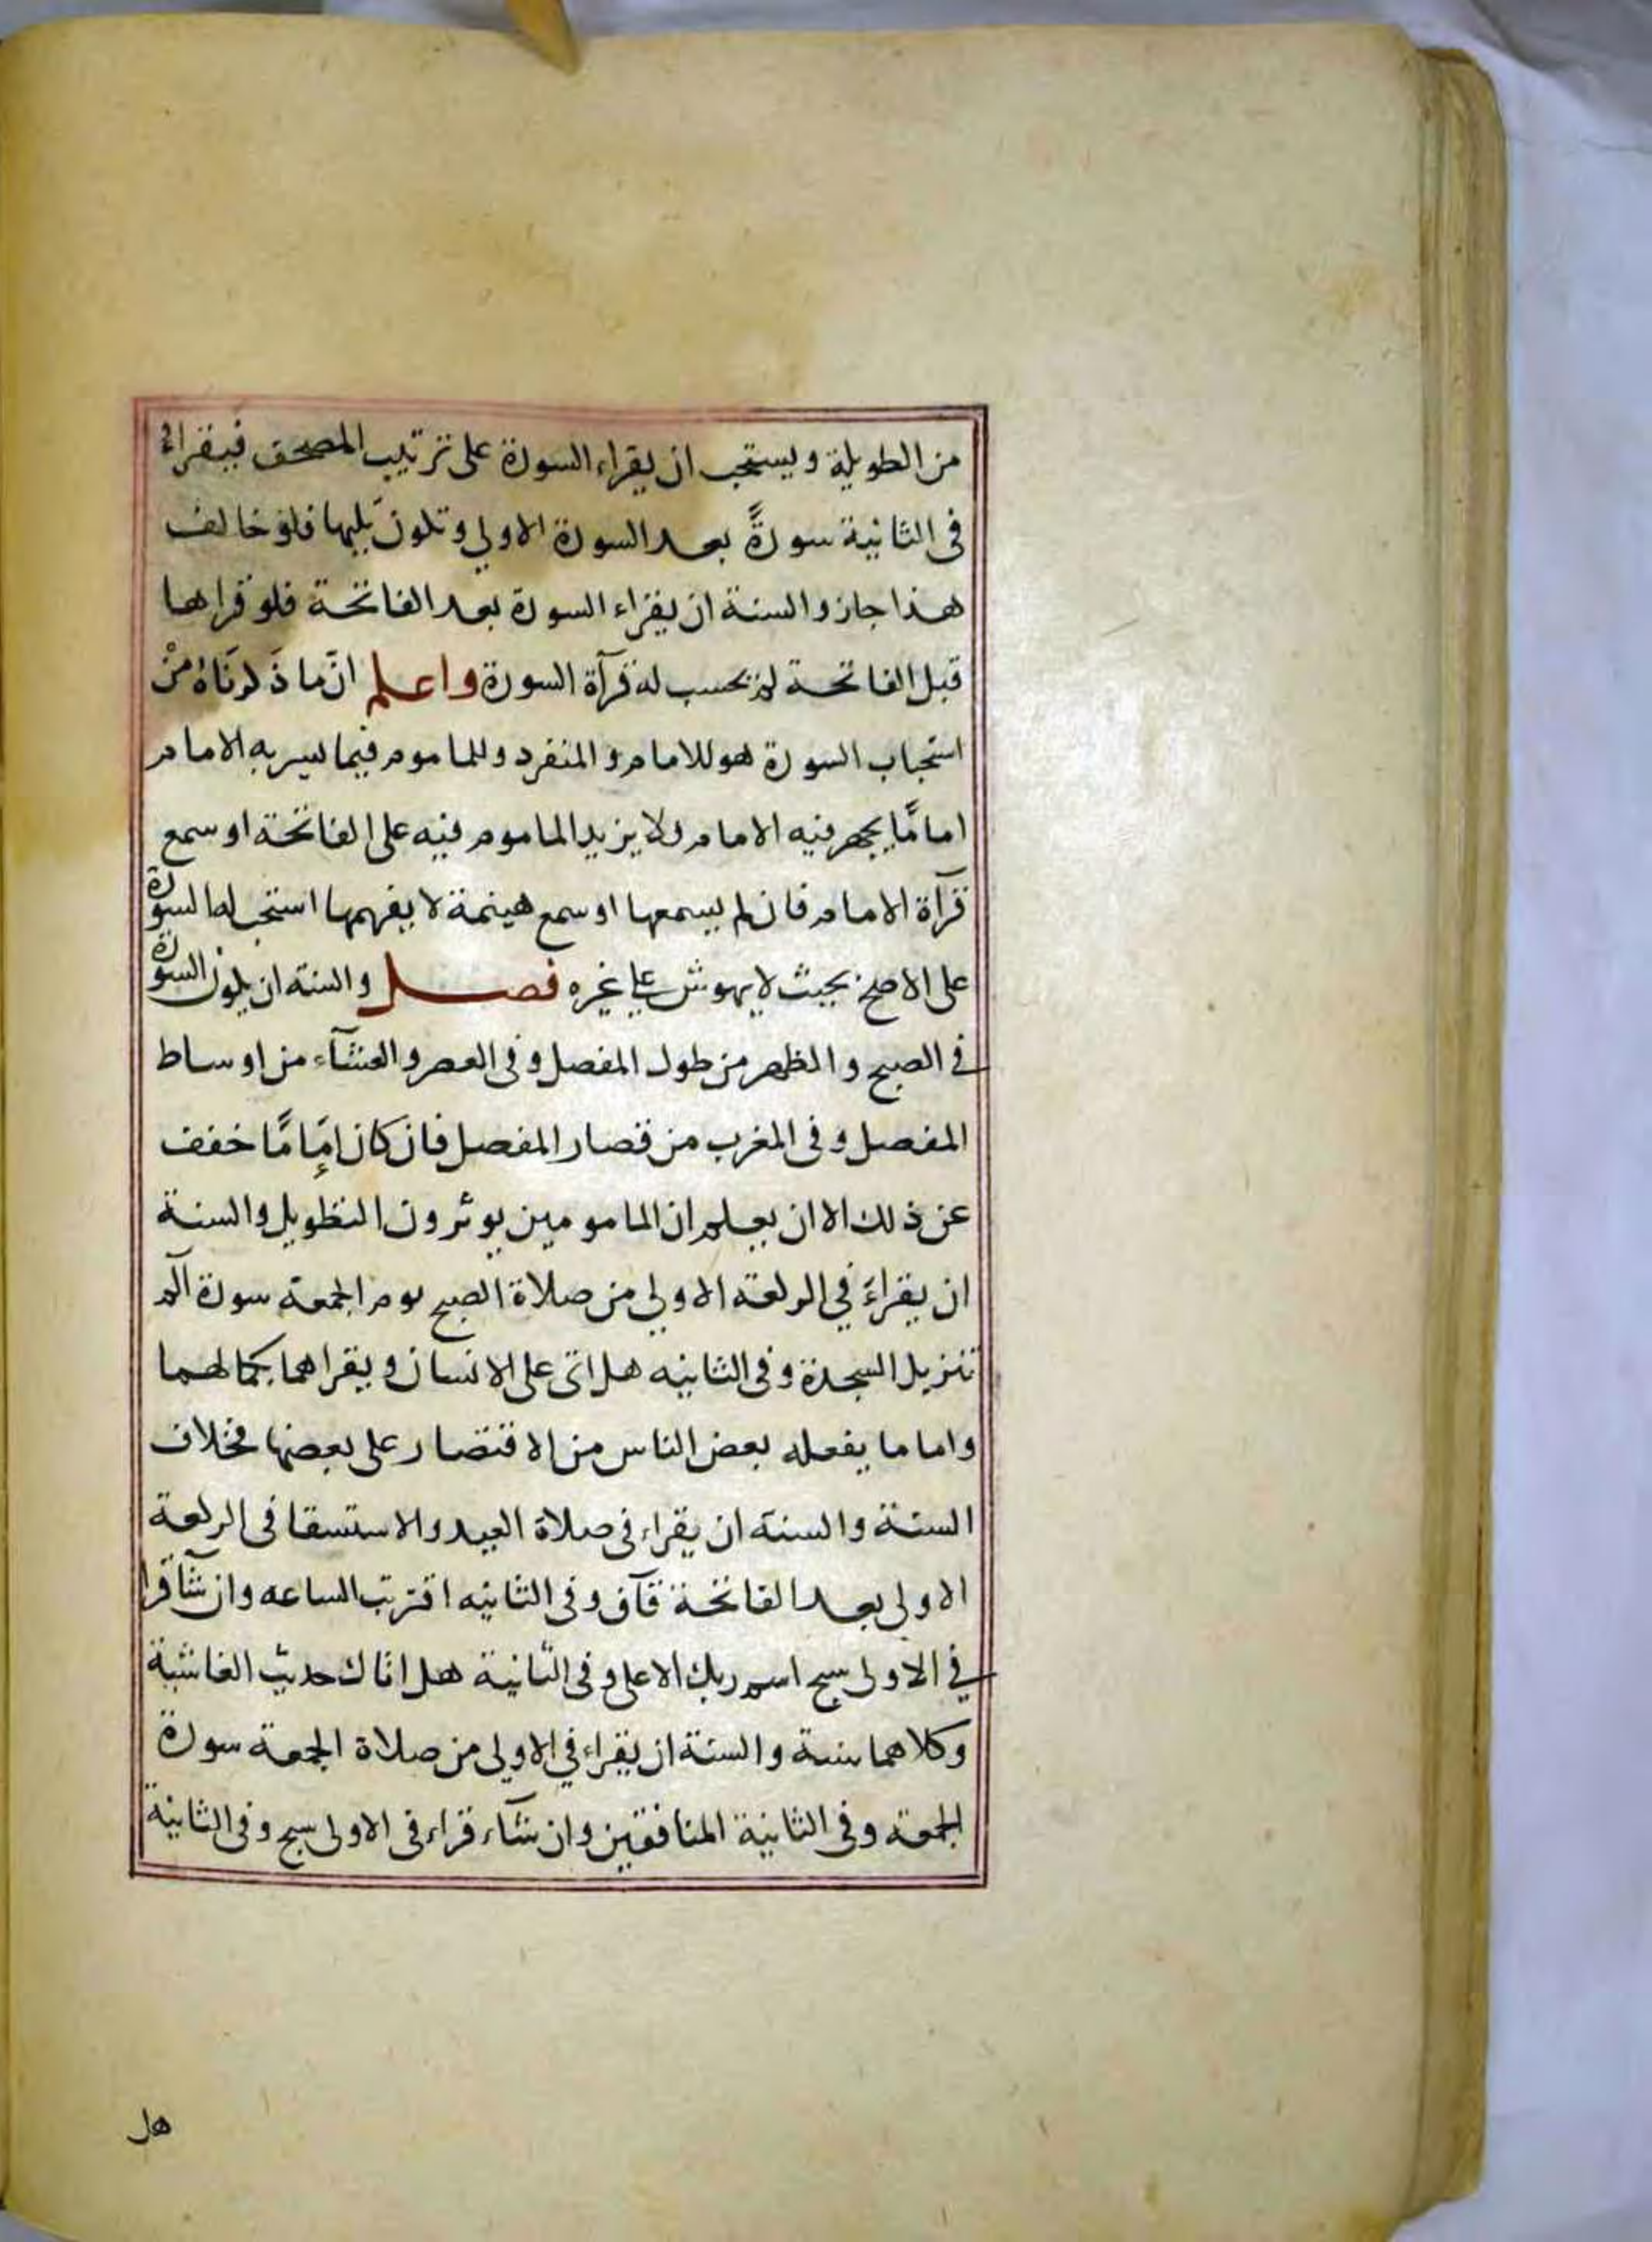 من الطويلة ويستحب ان يقراء السورة على ترتيب المصحف فيقراء
في الثانية سورةً بعد السورة الاولي وتكون تليها فلو خالف
هذا جاز والسنة ان يقراء السورة بعد الفاتحة فلو قراها
قبل الفاتحة لم تحسب له قرآة السورة واعلم انّ ما ذكرناه من
استحباب السورة هو للامام والمنفرد وللماموم فيما يسر به الامام
اما مّا يجهر فيه الامام فلا يزيد الماموم فيه على الفاتحة او سمع
قرآة الامام فان لم يسمعها او سمع هينمة لا يفهمها استحب له السورة
على الاصح بحيث لا يهوش على غيره فصل والسنة ان يكون السورة
في الصبح والظهر من طول المفصل وفي العصر والعشآء من اوساط
المفصل وفي المغرب من قصار المفصل فان كان إمَامًا خفف
عن ذلك الا ان يعلم ان المامومين يوثرون التطويل والسنة
ان يقراءَ في الركعة الاولي من صلاة الصبح يوم الجمعة سورة الم
تنزيل السجدة وفي الثانيه هل اتى على الانسان ويقراهما بكمالهما
واما ما يفعله بعض الناس من الاقتصار على بعضها فخلاف
السنة والسنة ان يقراء في صلاة العيد والاستسقا في الركعة
الاولى بعد الفاتحة قآف وفي الثانيه اقتربت الساعه وان شآ قرا
في الاولى سبح اسم ربك الاعلى وفي الثانية هل اتاك حديث الغاشية
وكلاهما سنة والسنة ان يقراء في الاولى من صلاة الجمعة سورة
الجمعة وفي الثانية المنافقين وان شآء قراء في الاولى سبح وفي الثانية
هل